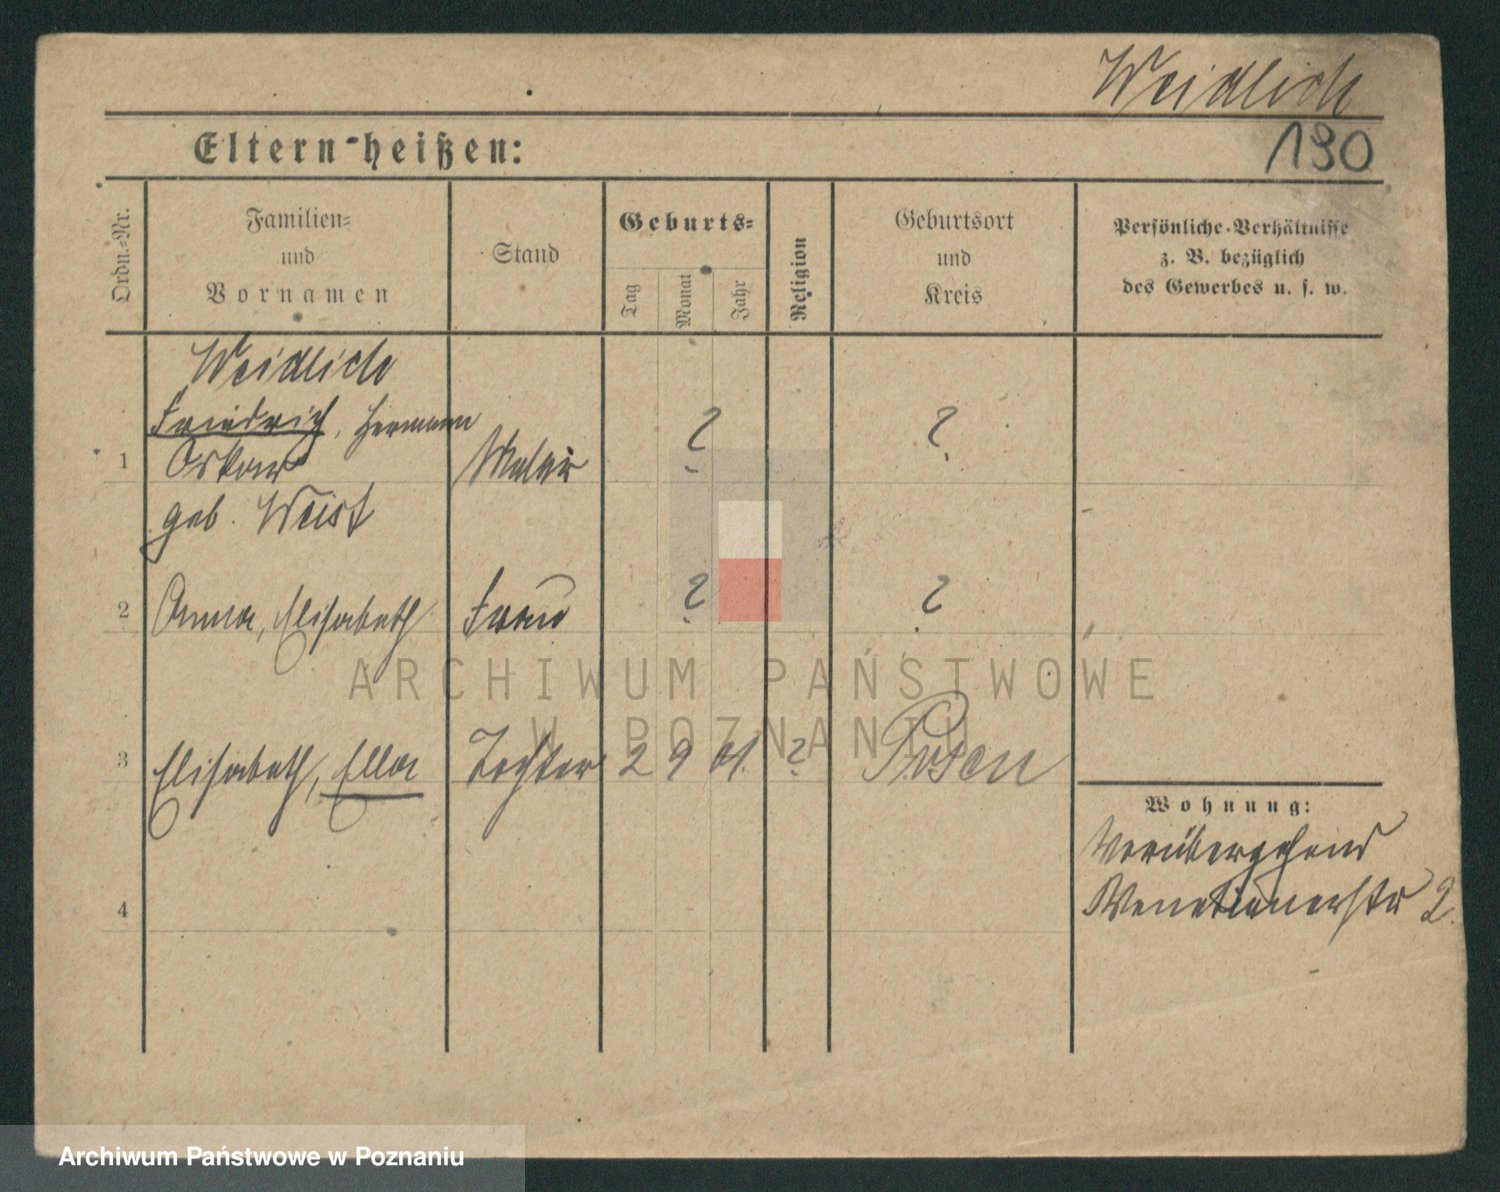 Weidlich
Eltern heißen:
190
Ordn.-Nr.
Familien-
und
Vornamen
Stand
Geburts-
Tag
Monat
Jahr
Religion
Geburtsort
und
Kreis
Persönliche Verhältnisse
z. B. bezüglich
des Gewerbes u. s. w.
Weidlich
Friedrich, Hermann
1 Oskar Maler ? ?
geb. Weist
2 Anna, Elisabeth Frau ? ?
ARCHIWUM PAŃSTWOWE
W POZNANIU
3 Elisabeth, Ella Tochter 2 9 01. ? Posen
Wohnung:
Vorübergehend
Venetianerstr 2.
4
Archiwum Państwowe w Poznaniu